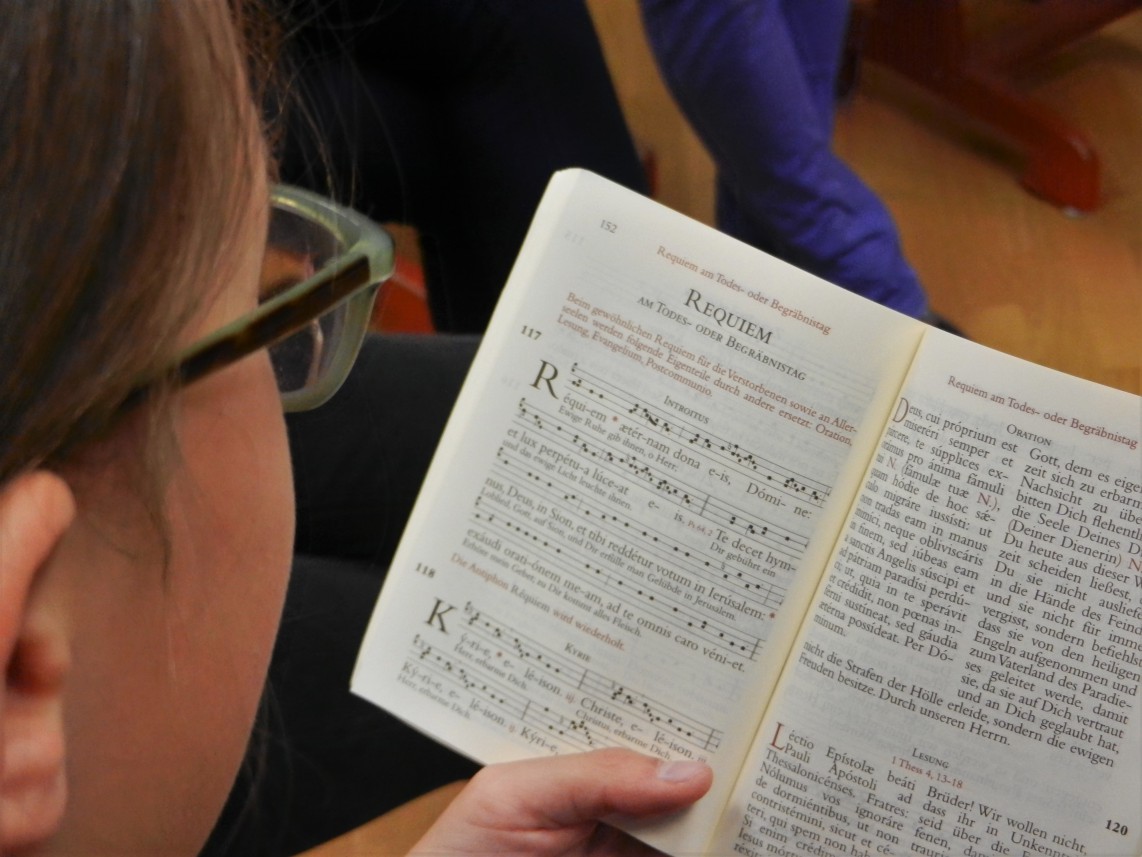 152
Requiem am Todes- oder Begräbnistag
Requiem
am Todes- oder Begräbnistag
Beim gewöhnlichen Requiem für die Verstorbenen sowie an Aller-
seelen werden folgende Eigenteile durch andere ersetzt: Oration,
Lesung, Evangelium, Postcommunio.
117
Introitus
Réqui-em * ætér-nam dona e-is, Dómi- ne:
Ewige Ruhe gib ihnen, o Herr:
et lux perpétu-a lúce-at e- is. Ps 64, 2 Te decet hym-
und das ewige Licht leuchte ihnen. Dir gebührt ein
nus, Deus, in Sion, et tibi reddétur votum in Ierúsalem: *
Loblied, Gott, auf Sion, und Dir erfülle man Gelübde in Jerusalem.
exáudi orati-ónem me-am, ad te omnis caro véni-et.
Erhöre mein Gebet, zu Dir kommt alles Fleisch.
Die Antiphon Réquiem wird wiederholt.
118
Kyrie
Kýri-e, * e- lé-ison. ij. Christe, e- lé-ison.
Herr, erbarme Dich. Christus, erbarme Dich.
Ký-ri-e, e- lé-ison. ij. Kýri-e,
Herr, erbarme Dich.
Requiem am Todes- oder Begräbnistag
Oration
Deus, cui próprium est
miseréri semper et
párcere, te súpplices ex-
pro ánima fámuli
N. (fámulæ tuæ N.),
quam hódie de hoc sǽ-
migráre iussísti: ut
non tradas eam in manus
neque obliviscáris
in finem, sed iúbeas eam
a sanctis Angelis súscipi et
ad pátriam paradísi perdú-
ut, quia in te sperávit
et crédidit, non pœnas in-
férni sustíneat, sed gáudia
ætérna possídeat. Per Dó-
minum.
Gott, dem es eigen
zeit sich zu erbarmen
Nachsicht zu
bitten Dich flehentlich
die Seele Deines
(Deiner Dienerin) N.
Du heute aus dieser
zeit scheiden ließest,
Du sie nicht
in die Hände des Feindes
und sie nicht für immer
vergisst, sondern
dass sie von den heiligen
Engeln aufgenommen und
zum Vaterland des Paradie-
ses geleitet werde, damit
sie, da sie auf Dich vertraut
und an Dich geglaubt hat,
nicht die Strafen der Hölle erleide, sondern die ewigen
Freuden besitze. Durch unseren Herrn.
Lesung
1 Thess 4, 13–18
120
Léctio Epístolæ beáti
Pauli Apóstoli ad
Thessalonicénses. Fratres:
Nólumus vos ignoráre
de dormiéntibus, ut non
contristémini, sicut et cé-
teri, qui spem non
Si enim
Brüder! Wir wollen nicht,
dass ihr in
seid über die